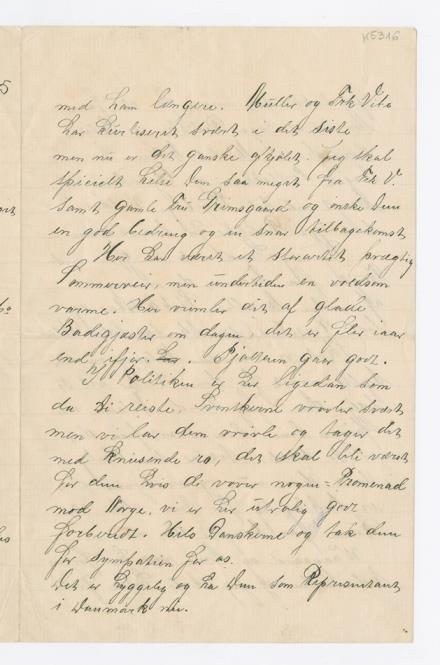 K5316
med ham længere. Müller og Frk Vibe
har kurtiseret svært i det siste
men nu er det ganske afkjølet. Jeg skal
specielt hilse Dem saa meget fra Frk V.
samt gamle Fru Grimsgaard og ønske Dem
en god bedring og en snar tilbagekomst
Her har været et storartet prægtig
Sommerveir, men undertiden en voldsom
varme. Her vrimler det af glade
Badegjæster om dagen, det er fler iaar
end ifjor. Bjælken gaar godt.
Politiken er her ligedan som
da Di reiste. Svenskerne vrøvler svært
men vi lar dem vrøvle og tager det
med knusende ro, det skal bli værst
for dem hvis de vover nogen Promenad
mod Norge, vi er her utrolig godt
forberedt. Hils Danskerne og tak dem
for sympatien for os.
Det er hyggelig og ha Dem som Repræsentant
i Danmark nu.